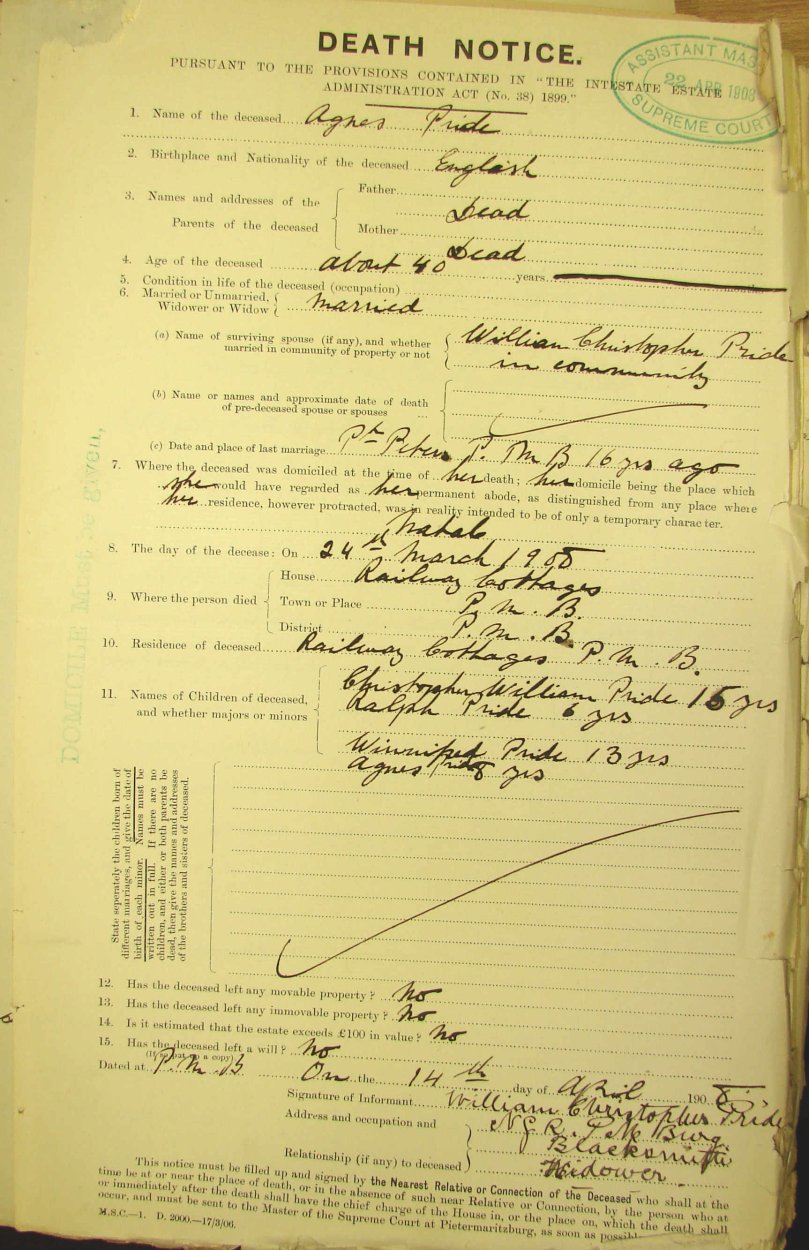 DEATH NOTICE.
PURSUANT TO THE PROVISIONS CONTAINED IN "THE INTESTATE ESTATE
ADMINISTRATION ACT (No. 38) 1899."
ASSISTANT MAS
22 APR 1908
SUPREME COURT
1. Name of the deceased Agnes Pride
2. Birthplace and Nationality of the deceased English
3. Names and addresses of the Parents of the deceased
Father Dead
Mother Dead
4. Age of the deceased about 40 years months
5. Condition in life of the deceased (occupation)
6. Married or Unmarried, Widower or Widow Married
(a) Name of surviving spouse (if any), and whether married in community of property or not
William Christopher Pride
in community
(b) Name or names and approximate date of death of pre-deceased spouse or spouses
(c) Date and place of last marriage Peters P. M B 16 yrs ago
7. Where the deceased was domiciled at the time of her death; her domicile being the place which
she would have regarded as her permanent abode, as distinguished from any place where
her residence, however protracted, was in reality intended to be of only a temporary character.
Natal
8. The day of the decease: On 24th March 1908
9. Where the person died
House Railway Cottages
Town or Place P. M. B.
District P. M. B.
10. Residence of deceased Railway Cottages P. M. B.
11. Names of Children of deceased, and whether majors or minors
Christopher William Pride 15 yrs
Ralph Pride 6 yrs
Winnifred Pride 13 yrs
Agnes Pride 8 yrs
State seperately the children born of
different marriages, and give the date of
birth of each minor. Names must be
written out in full. If there are no
children, and either or both parents be
dead, then give the names and addresses
of the brothers and sisters of deceased.
12. Has the deceased left any movable property? No
13. Has the deceased left any immovable property? No
14. Is it estimated that the estate exceeds £100 in value? No
15. Has the deceased left a will? No
Dated at P. M. B On the 14th day of April 1908
Signature of Informant William Christopher Pride
Address and occupation and N G R. P M Burg
Blacksmith
Relationship (if any) to deceased Widower.
This notice must be filled up and signed by the Nearest Relative or Connection of the Deceased who shall at the
time be at or near the place of death, or in the absence of such near Relative or Connection, by the person who at
or immediately after the death shall have the chief charge of the House in, or the place on, which the death shall
occur, and must be sent to the Master of the Supreme Court at Pietermaritzburg, as soon as possible
M.S.C.—1. D. 2000.—17/3/06.